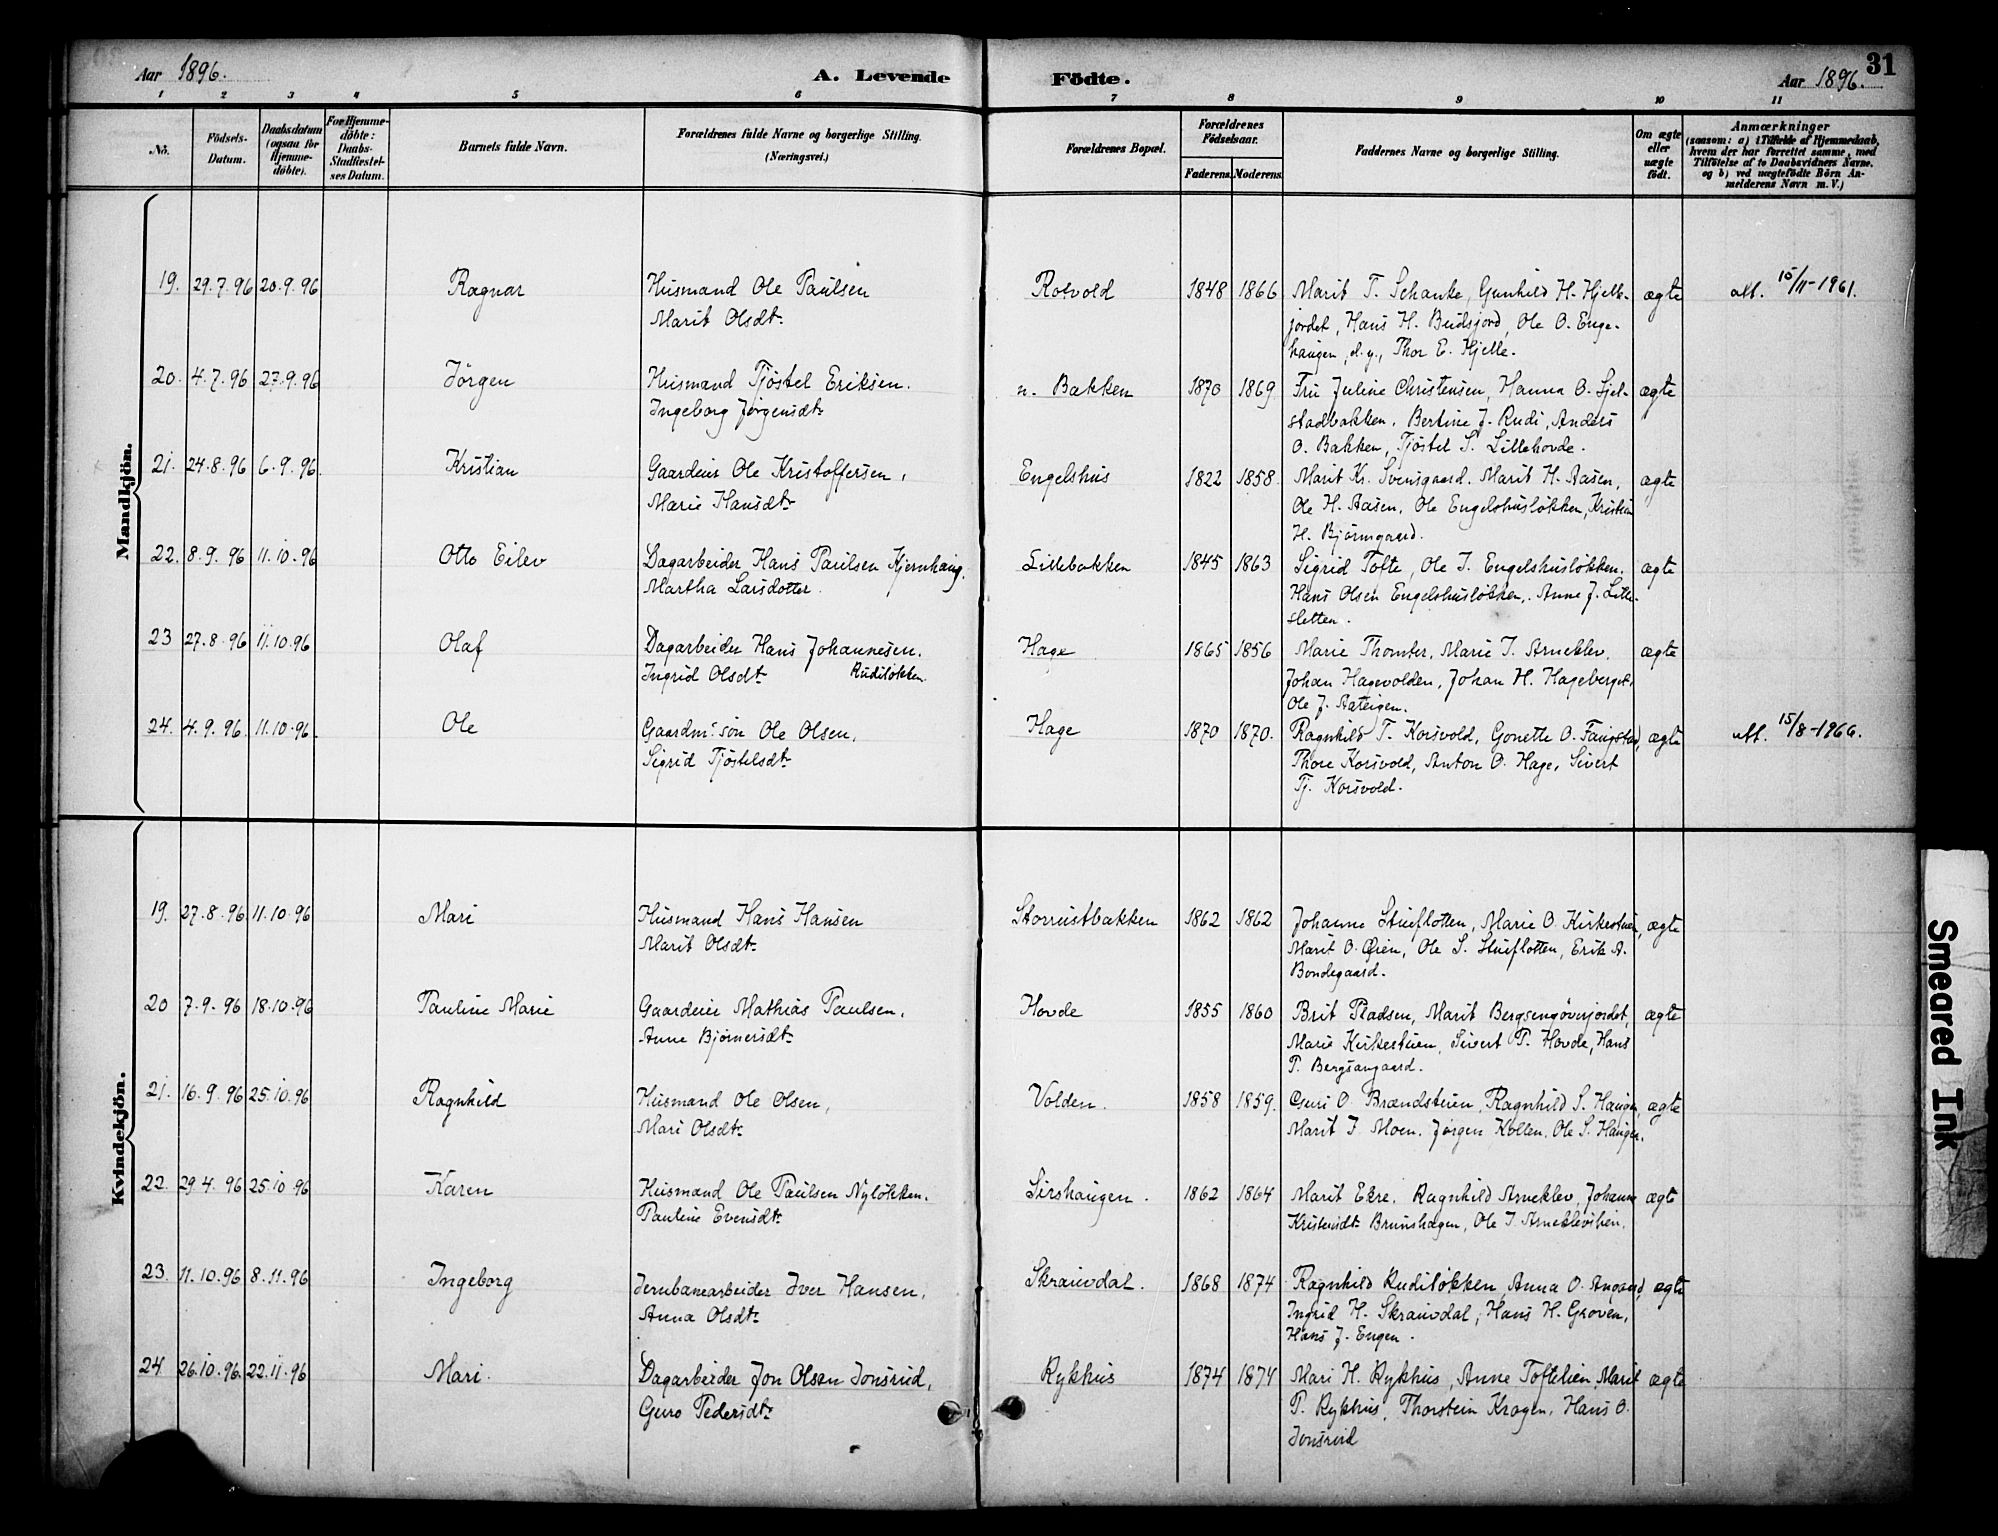 Aar 1896.
A. Levende Födte.
Aar 1896.
31
1 2 3 4 5 6 7 8 9 10 11
No.
Födsels-
Datum.
Daabsdatum
(ogsaa for
Hjemme-
döbte).
For Hjemme-
döbte:
Daabs-
Stadfæstel-
ses Datum.
Barnets fulde Navn.
Forældrenes fulde Navne og borgerlige Stilling.
(Næringsvei.)
Forældrenes Bopæl.
Forældrenes
Födselsaar.
Faderens. Moderens.
Faddernes Navne og borgerlige Stilling.
Om ægte
eller
uægte
födt.
Anmærkninger
(saasom: a) i Tilfælde af Hjemmedaab,
hvem der har forrettet samme, med
Tilföielse af to Daabsvidners Navne,
og b) ved uægtefödte Börn An-
melderens Navn m. V.)
Mandkjön.
19. 29.7.96 20.9.96 Ragnar Husmand Ole Paulsen Rolvold 1848 1866 Marit T. Schanke, Gunhild H. Hjelle- ægte att. 15/11-1961.
Marit Olsdt. jordet, Hans H. Budsjord, Ole O. Enge-
haugen, d.y., Thor E. Hjelle.
20. 4.7.96 27.9.96 Jörgen Husmand Tjöstel Eriksen. n. Bakken 1870 1869 Fru Juline Christensen, Hanna O. Sjel- ægte
Ingeborg Jørgensdt. stadbakken. Bertine J. Rudi, Anders
O. Bakken, Tjöstel S. Lillehovde.
21. 24.8.96 6.9.96. Kristian Gaardeier Ole Kristoffersen, Engelshus 1822 1858 Marit Kr. Svensgaard. Marit H. Aasen, ægte
Marie Hansdt. Ole H. Aasen, Ole Engelshusløkken, Kristian
H. Bjørngaard.
22. 8.9.96 11.10.96 Otto Eilev Dagarbeider Hans Paulsen Kjernhaug. Lillebakken 1845 1863 Sigrid Tofte, Ole I. Engelshusløkken. ægte
Martha Larsdotter. Hans Olsen Engelshusløkken, Anne J. Lille-
sletten.
23 27.8.96 11.10.96 Olaf Dagarbeider Hans Johannesen. Hage 1865 1856 Marie Thomter, Marie I. Arneklev. ægte
Ingrid Olsdt. Rudiløkken. Johan Hagevolden, Johan H. Hageberget,
Ole J. Aateigen.
24. 4.9.96. 11.10.96. Ole Gaardm. søn Ole Olsen, Hage 1870 1870. Ragnhild T. Korsvold, Gonette O. Faugstad, ægte att. 15/8-1966.
Sigrid Tjöstelsdt. Thore Korsvold, Anton O. Hage, Sivert
Tj. Korsvold.
Kvindekjön.
19. 27.8.96 11.10.96 Mari Husmand Hans Hansen Storrustbakken 1862 1862 Johanne Stueflotten, Marie O. Kirkestuen, ægte
Marit Olsdt. Marit O. Øien, Ole S. Stueflotten, Erik A.
Bondegaard.
20 7.9.96 18.10.96 Pauline Marie Gaardeier Mathias Paulsen. Hovde 1855 1860 Brit Pladsen, Marit Bergsengøverjordet, ægte
Anne Bjørnersdt. Marie Kirkestuen, Sivert P. Hovde, Hans
P. Bergsangaard.
21. 16.9.96 25.10.96 Ragnhild Husmand Ole Olsen, Volden. 1858 1859. Guri O. Brændstuen, Ragnhild S. Haugen, ægte
Mari Olsdt. Marit I. Moen. Jørgen Kollen. Ole S. Haugen.
22. 29.4.96 25.10.96 Karen Husmand Ole Paulsen Nyløkken. Sirshaugen. 1862 1864 Marit Ekre. Ragnhild Arneklev, Johanne ægte
Pauline Evensdt. Kristensdt. Brunshagen, Ole I. Arneklevslien.
23. 11.10.96 8.11.96 Ingeborg Jernbanearbeider Iver Hansen, Skrauvdal. 1868 1874 Ragnhild Rudiløkken, Anna O. Angard, ægte
Anna Olsdt. Ingrid H. Skrauvdal, Hans H. Groven,
Hans J. Engen.
24 26.10.96. 22.11.96 Mari. Dagarbeider Jon Olsen Jonsrud, Rykhus 1874 1874 Mari H. Rykhus, Anne Toftelien, Marit ægte
Guro Pedersdt. P. Rykhus, Thorstein Kragen, Hans O.
Jonsrud
Smeared Ink